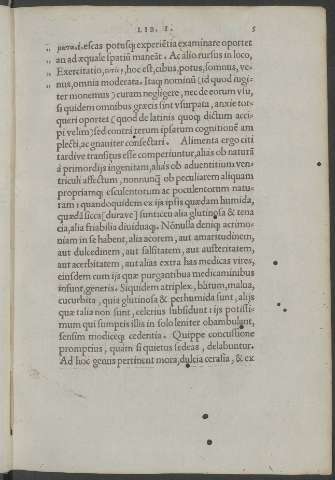 LIB. I. 5
„ μετα.ι. escas potusq; experiẽtia examinare oportet
„ an ad æquale spatiũ maneãt. Ac alio rursus in loco,
„ Exercitatio, hoc est, cibus, potus, somnus, ve-
„ nus, omnia moderata. Itaq; nominũ (id quod nugi-
ter monemus) curam negligere, nec de eorum vsu,
si quidem omnibus græcis sint vsurpata, anxie tor-
queri oportet (quod de latinis quoq; dictum acci-
pi velim) sed contrà rerum ipsarum cognitionẽ am
plecti, ac gnauiter consectari. Alimenta ergo citi
tardive transitus esse comperiuntur, aliàs ob naturã
à primordijs ingenitam, aliàs ob aduentitium ven-
triculi affectum, nonnunq̃ ob peculiarem aliquam
propriamq; esculentorum ac poculentorum natu-
ram: quandoquidem ex ijs ipsis quædam humida,
quædã sicca [durave] sunt: ceu alia glutinosa & tena
cia, alia friabilia diuiduaq;. Nõnulla deniq; acrimo-
niam in se habent, alia acorem, aut amaritudinem,
aut dulcedinem, aut falsitatem, aut austeritatem,
aut acerbitatem, aut alias extra has medicas vires,
eiusdem cum ijs quæ purgantibus medicaminibus
insunt, generis. Siquidem atriplex, blitum, malua,
cucurbita, quia glutinosa & perhumida sunt, alijs
quæ talia non sunt, celerius subsidunt: ijs potissi-
mum qui sumptis illis in solo leniter obambulant,
sensim modiceq; cedentia. Quippe concussione
promptius, quàm si quietus sedeas, delabuntur.
Ad hoc genus pertinent mora, dulcia cerasia, & ex